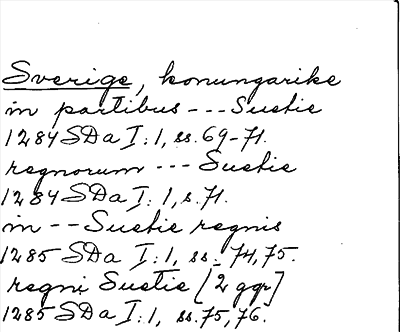 Sverige, konungarike
in partibus --- Suetie
1284 SDa I:1, ss. 69-71.
regnorum --- Suetie
1284 SDa I:1, s. 71.
in -- Suetie regnis
1285 SDa I:1, ss. 74, 75.
regni Suetie [2 ggr]
1285 SDa I:1, ss. 75, 76.